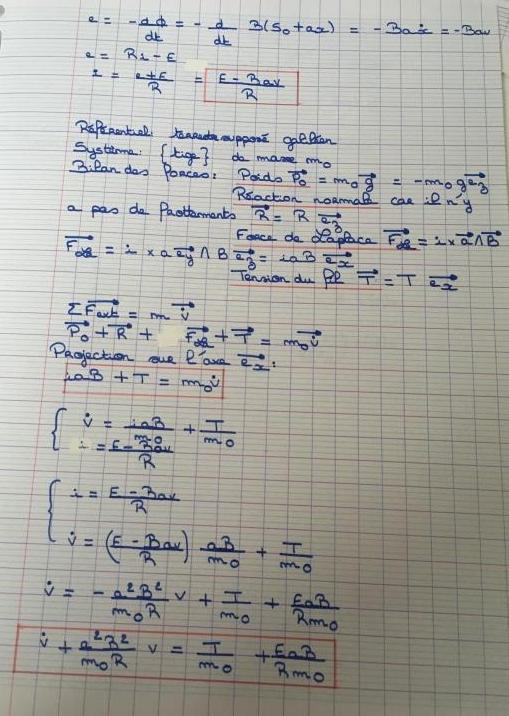 e = -dϕ/dt = - d/dt B(S₀ + ax) = - Baẋ = -Bav
e = Ri - E
i = (e+E)/R = (E - Bav)/R
Référentiel: terrestre supposé galiléen
Système: {tige} de masse m₀
Bilan des forces: Poids P₀⃗ = m₀g⃗ = -m₀g e_z⃗
Réaction normale car il n'y
a pas de frottements R⃗ = R e_z⃗
Force de Laplace F_la⃗ = i × a⃗ ∧ B⃗
F_la⃗ = i × a e_y⃗ ∧ B e_z⃗ = iaB e_x⃗
Tension du fil T⃗ = T e_x⃗
ΣF_ext⃗ = m v̇⃗
P₀⃗ + R⃗ + F_la⃗ + T⃗ = m₀v̇⃗
Projection sur l'axe e_x⃗:
iaB + T = m₀v̇
{ v̇ = iaB/m₀ + T/m₀
i = (E - Bav)/R
{ i = (E - Bav)/R
v̇ = ((E - Bav)/R) aB/m₀ + T/m₀
v̇ = - a²B²/(m₀R) v + T/m₀ + EaB/(Rm₀)
v̇ + a²B²/(m₀R) v = T/m₀ + EaB/(Rm₀)